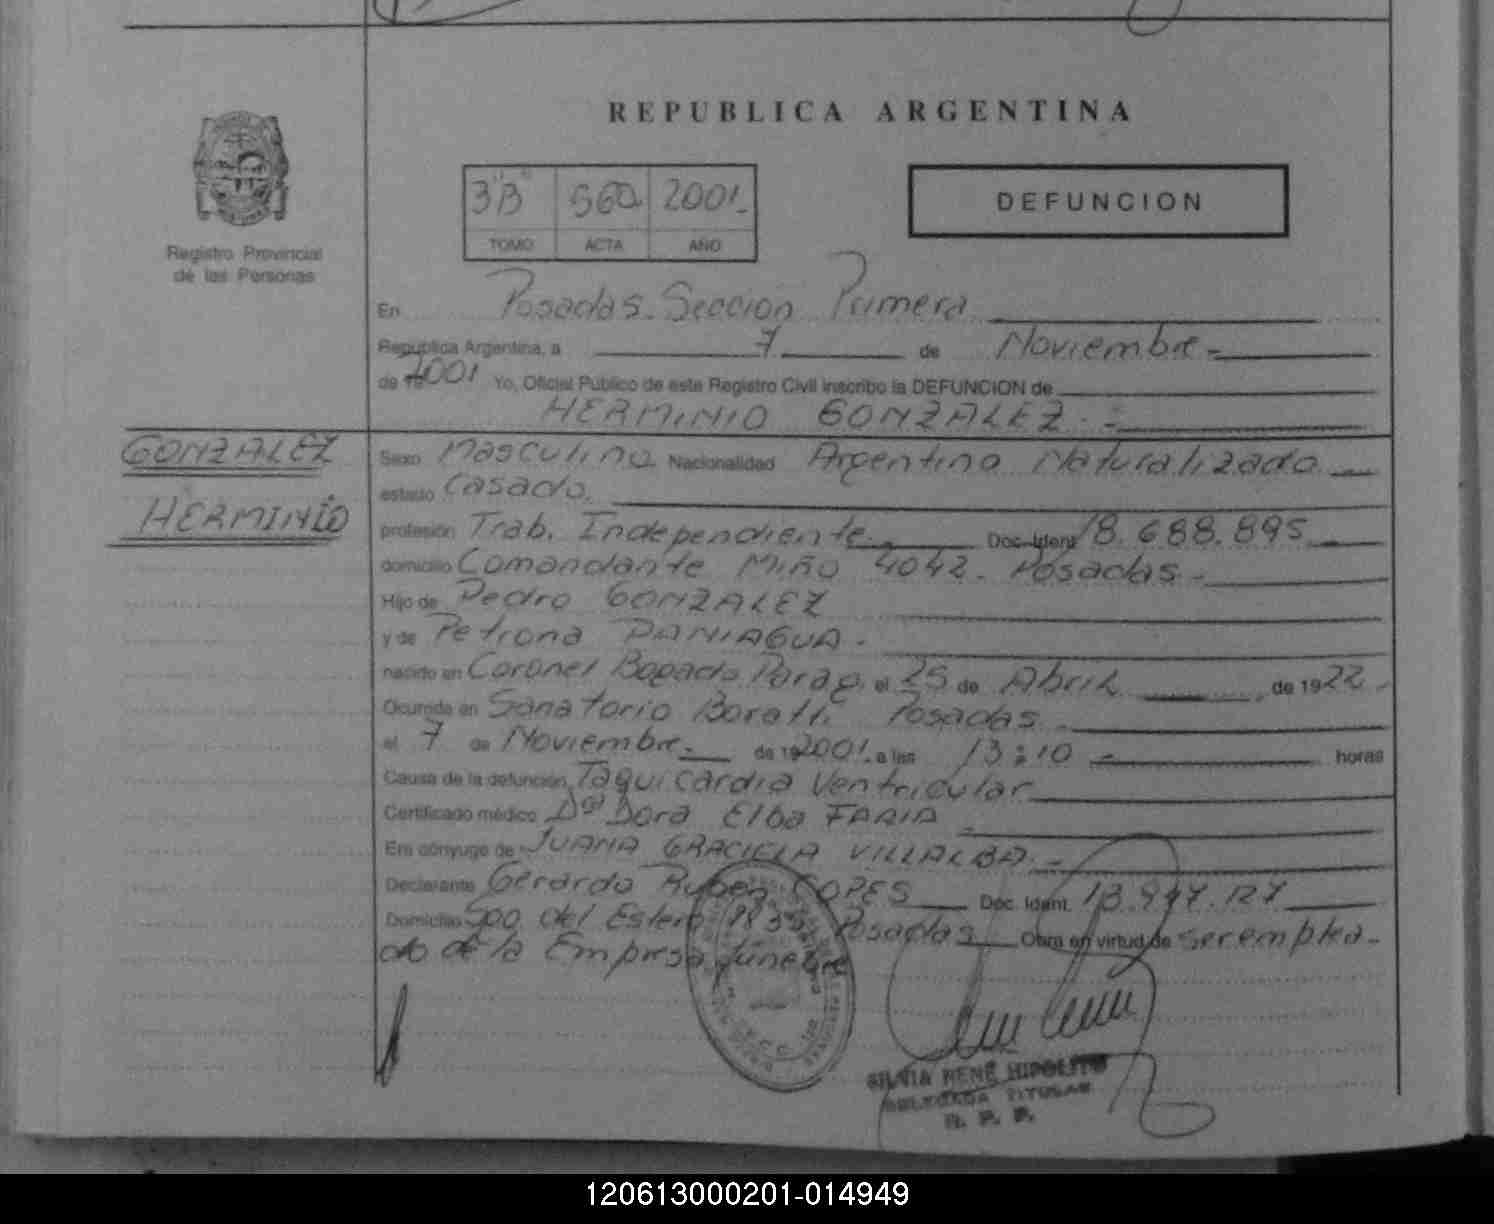 REPUBLICA ARGENTINA
3"B" 560 2001.
TOMO ACTA AÑO
DEFUNCION
Registro Provincial
de las Personas
En Posadas. Seccion Primera
Republica Argentina, a 7 de Noviembre
de 19 2001 Yo, Oficial Público de este Registro Civil inscribo la DEFUNCION de
HERMINIO GONZALEZ.
GONZALEZ
HERMINIO
Sexo Masculino Nacionalidad Argentino Naturalizado
estado Casado.
profesión Trab. Independiente Doc. Ident 18.688.895
domicilio Comandante Miño 4042. Posadas.
Hijo de Pedro GONZALEZ
y de Petrona PANIAGUA.
nacido en Coronel Bogado Parag. el 25 de Abril de 1922
Ocurrida en Sanatorio Boratti Posadas
el 7 de Noviembre. de 19 2001. a las 13:10 horas
Causa de la defunción Taquicardia Ventricular
Certificado médico Dra Dora Elba FARIA
Era cónyuge de JUANA GRACIELA VILLALBA.
Declarante Gerardo Ruben COPES Doc. Ident. 13.997.127
Domicilio Sgo. del Estero Posadas Obra en virtud de ser emplea-
do de la Empresa funebre
SILVIA RENÉ HIPOLITO
DELEGADA TITULAR
R. P. P.
120613000201-014949